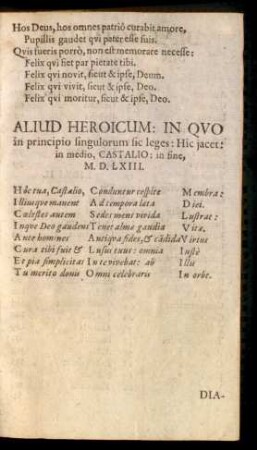 Hos Deus, hos omnes patriô curabit amore,
Pupillis gaudet qui pater esse suis.
Qvis fueris porrò, non est memorare necesse:
Felix qvi fiet par pietate tibi.
Felix qvi novit, sicut & ipse, Deum.
Felix qvi vivit, sicut & ipse, Deo.
Felix qvi moritur, sicut & ipse, Deo.
ALIUD HEROICUM: IN QVO
in principio singulorum sic leges: Hic jacet:
in medio, CASTALIO: in fine,
M. D. LXIII.
Hâc tua, Castalio, Conduntur cespite Membra:
Illiusque manent Ad tempora lata Diei.
Cœlestes autem Sedes mens vivida Lustrat:
Inque Deo gaudens Tenet alma gaudia Vitæ.
Ante homines Antiqva fides, & cādida Virtus
Curæ tibi fuit & Lusus tunc: omnia Iustè
Et pia simplicitas In te vivebat: ab Illis
Tu meritò donis Omni celebraris In orbe.
DIA-